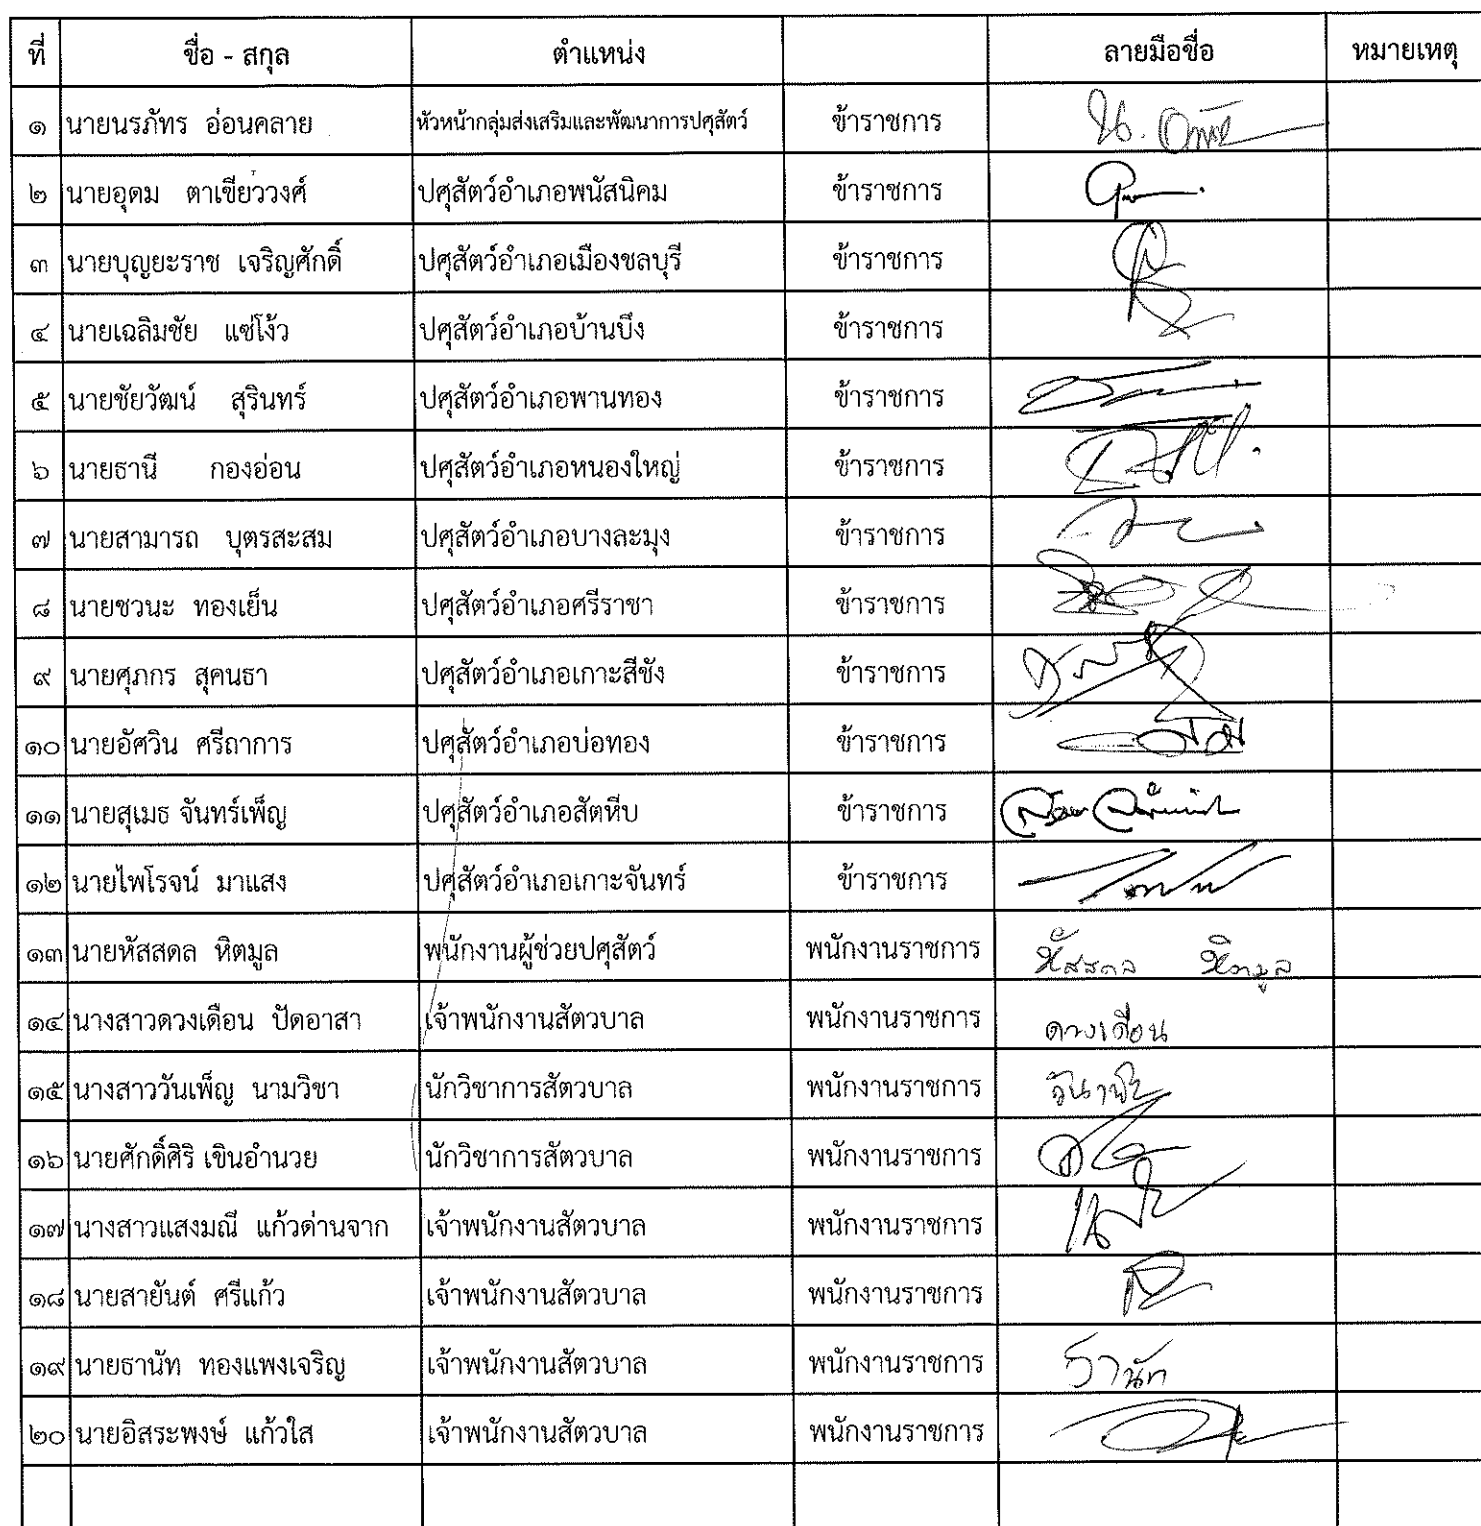 ที่ ชื่อ - สกุล ตำแหน่ง ลายมือชื่อ หมายเหตุ
๑ นายนรภัทร อ่อนคลาย หัวหน้ากลุ่มส่งเสริมและพัฒนาการปศุสัตว์ ข้าราชการ
๒ นายอุดม ตาเขียววงศ์ ปศุสัตว์อำเภอพนัสนิคม ข้าราชการ
๓ นายบุญยะราช เจริญศักดิ์ ปศุสัตว์อำเภอเมืองชลบุรี ข้าราชการ
๔ นายเฉลิมชัย แซ่โง้ว ปศุสัตว์อำเภอบ้านบึง ข้าราชการ
๕ นายชัยวัฒน์ สุรินทร์ ปศุสัตว์อำเภอพานทอง ข้าราชการ
๖ นายธานี กองอ่อน ปศุสัตว์อำเภอหนองใหญ่ ข้าราชการ
๗ นายสามารถ บุตรสะสม ปศุสัตว์อำเภอบางละมุง ข้าราชการ
๘ นายชวนะ ทองเย็น ปศุสัตว์อำเภอศรีราชา ข้าราชการ
๙ นายศุภกร สุคนธา ปศุสัตว์อำเภอเกาะสีชัง ข้าราชการ
๑๐ นายอัศวิน ศรีถาการ ปศุสัตว์อำเภอบ่อทอง ข้าราชการ
๑๑ นายสุเมธ จันทร์เพ็ญ ปศุสัตว์อำเภอสัตหีบ ข้าราชการ
๑๒ นายไพโรจน์ มาแสง ปศุสัตว์อำเภอเกาะจันทร์ ข้าราชการ
๑๓ นายหัสสดล หิตมูล พนักงานผู้ช่วยปศุสัตว์ พนักงานราชการ หัสสดล หิตมูล
๑๔ นางสาวดวงเดือน ปัดอาสา เจ้าพนักงานสัตวบาล พนักงานราชการ ดวงเดือน
๑๕ นางสาววันเพ็ญ นามวิชา นักวิชาการสัตวบาล พนักงานราชการ
๑๖ นายศักดิ์ศิริ เขินอำนวย นักวิชาการสัตวบาล พนักงานราชการ
๑๗ นางสาวแสงมณี แก้วด่านจาก เจ้าพนักงานสัตวบาล พนักงานราชการ
๑๘ นายสายันต์ ศรีแก้ว เจ้าพนักงานสัตวบาล พนักงานราชการ
๑๙ นายธานัท ทองแพงเจริญ เจ้าพนักงานสัตวบาล พนักงานราชการ ธานัท
๒๐ นายอิสระพงษ์ แก้วใส เจ้าพนักงานสัตวบาล พนักงานราชการ